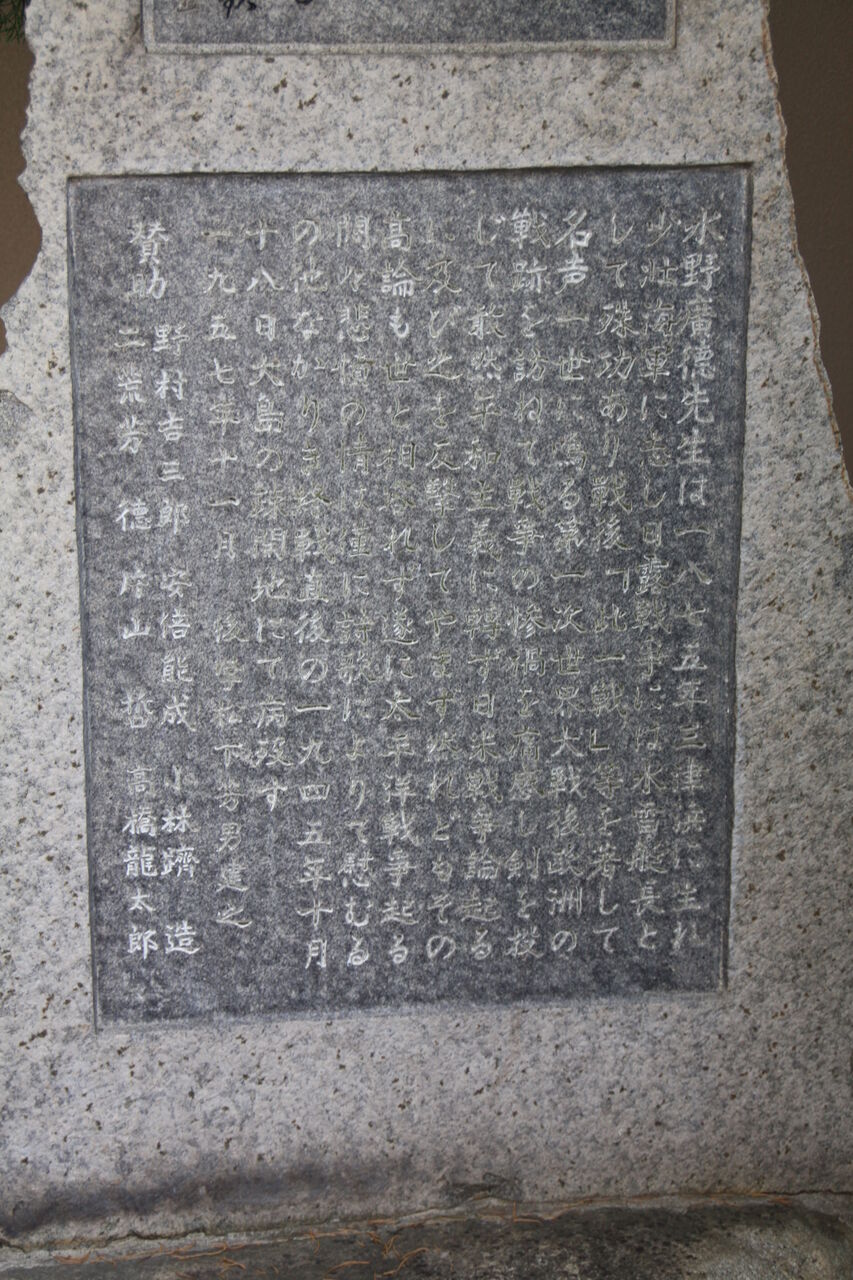 水野廣德先生は一八七五年三津浜に生れ
少壯海軍に志し日露戰争には水雷艇長と
して殊功あり戰後「此一戰」等を著して
名声一世に鳴る第一次世界大戰後欧洲の
戰跡を訪ねて戰争の惨禍を痛感し剣を投
じて敢然平和主義に轉ず日米戰争論起る
に及び之を反撃してやまず然れどもその
高論も世と相容れず遂に太平洋戰争起る
関々悲憤の情は重に詩歌によりて慰むる
の他なかりき終戰直後の一九四五年十月
十八日大島の疎開地にて病歿す
一九五七年十一月 後学松下芳男建之
賛助 野村吉三郎 安倍能成 小林躋造
二荒芳德 片山 哲 高橋龍太郎